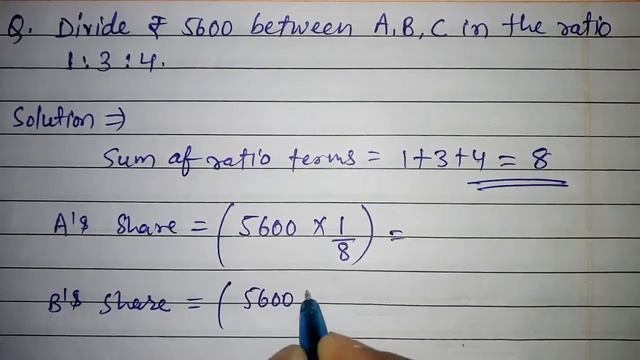 Q. Divide ₹ 5600 between A, B, C in the ratio
1 : 3 : 4.
Solution ⇒
Sum of ratio terms = 1+3+4 = 8
A's Share = ( 5600 × 1/8 ) =
B's Share = ( 5600